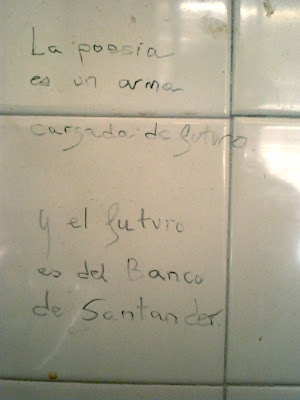 La poesia
es un arma
cargada de futuro
y el futuro
es del Banco
de Santander.